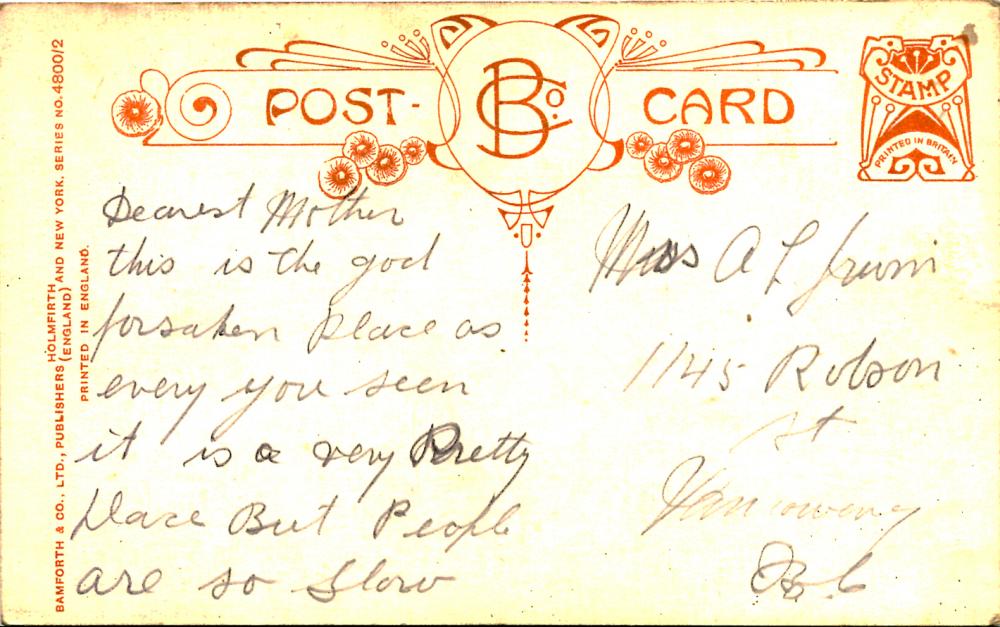 POST-
CARD
B Co.
STAMP
PRINTED IN BRITAIN
BAMFORTH & CO., LTD., PUBLISHERS HOLMFIRTH (ENGLAND) AND NEW YORK. SERIES NO. 4800/2
PRINTED IN ENGLAND.
Dearest Mother
this is the god
forsaken place as
every you seen
it is a very Pretty
place But People
are so slow
A L Irwin
1145 Robson
st
B.C